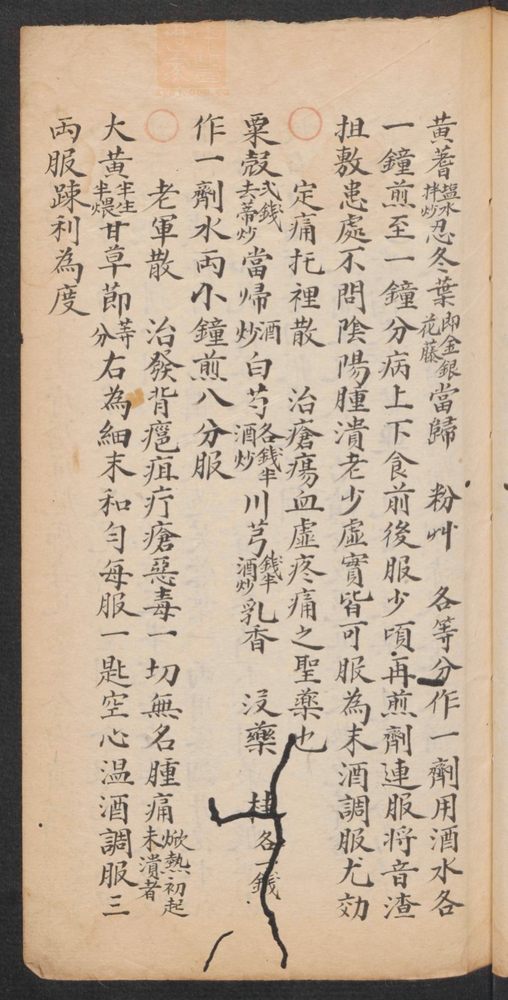 黃蓍塩水拌炒忍冬葉即金銀花藤當歸 粉艸 各等分作一劑用酒水各
一鐘煎至一鐘分病上下食前後服少頃再煎劑連服將音渣
担敷患處不問陰陽腫潰老少虛實皆可服為末酒調服尤効
○ 定痛托裡散 治瘡瘍血虛疼痛之聖藥也
粟殼弍錢去蒂炒當歸酒炒白芍各錢半酒炒川芎錢半酒炒乳香 沒藥 桂各一錢
作一劑水兩小鐘煎八分服
○ 老軍散 治發背癰疽疔瘡惡毒一切無名腫痛焮熱初起未潰者
大黃半生半煨甘草節等分右為細末和勻每服一匙空心温酒調服三
兩服踈利為度